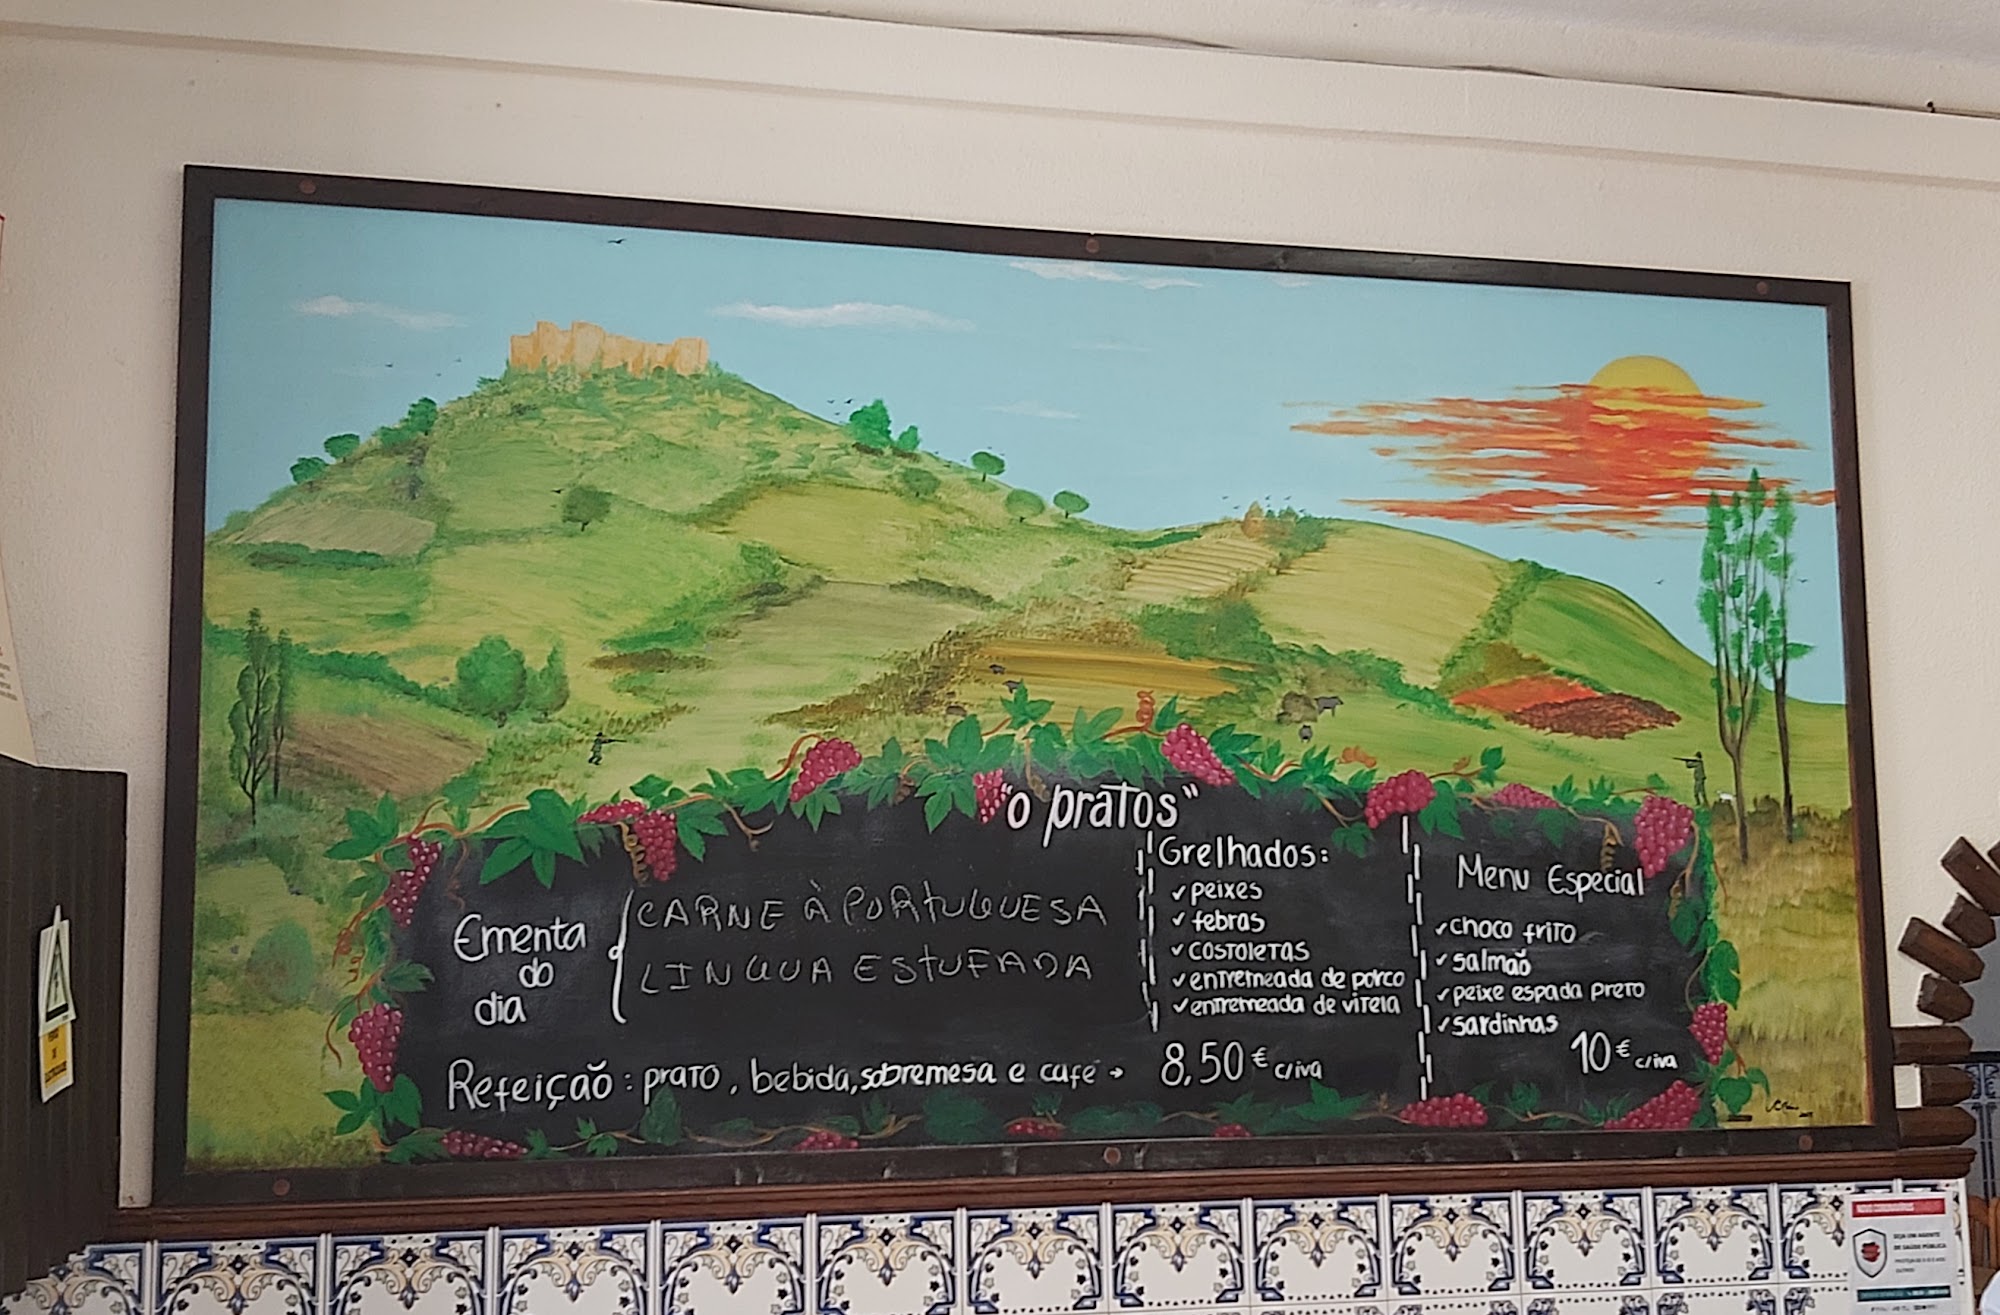 "o pratos"
Ementa
do
dia
CARNE À PORTUGUESA
LINGUA ESTUFADA
Grelhados:
✓ peixes
✓ febras
✓ costoletas
✓ entremeada de porco
✓ entremeada de vitela
Menu Especial
✓ choco frito
✓ salmão
✓ peixe espada preto
✓ sardinhas
10€ c/iva
Refeição: prato, bebida, sobremesa e café → 8,50€ c/iva
SEJA UM AGENTE
DE SAÚDE PÚBLICA